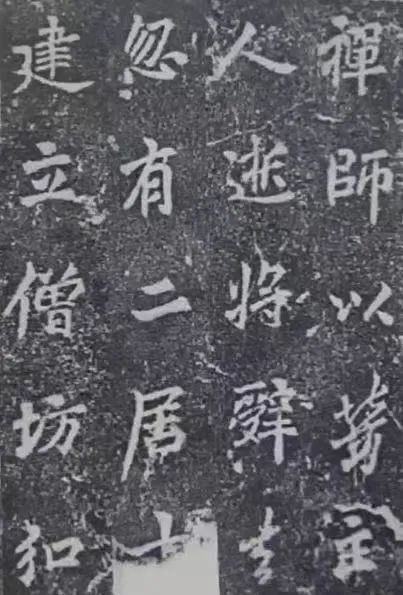 禪師以勞主
人逝將辭去
忽有二居士
建立僧坊弘